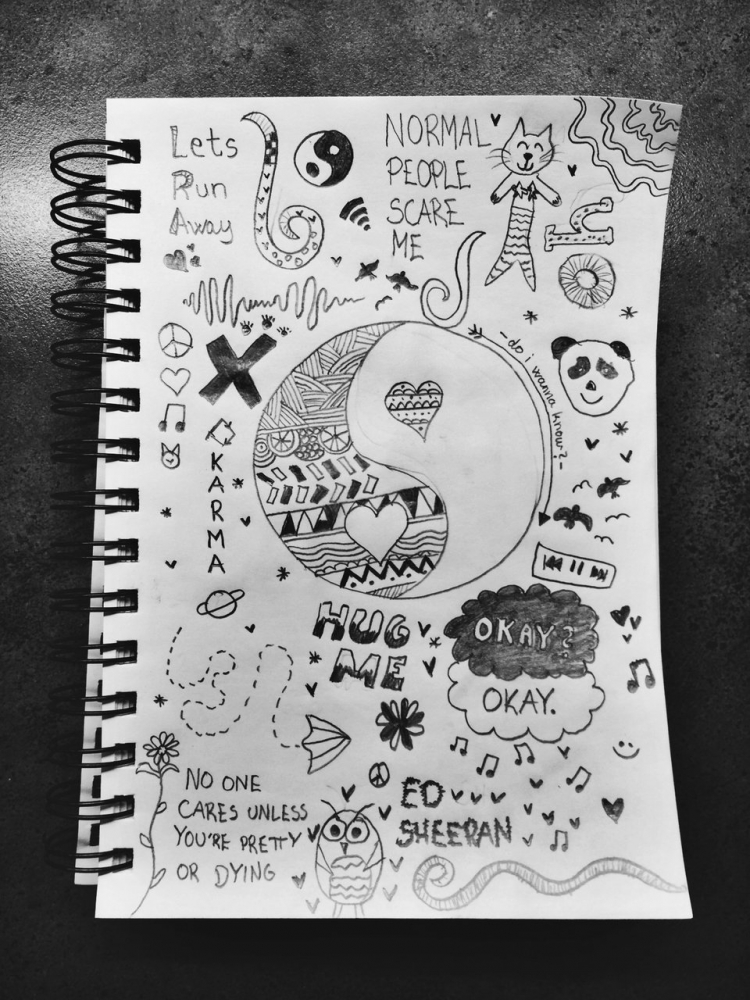 Lets
Run
Away
NORMAL
PEOPLE
SCARE
ME
-do i wanna know?-
KARMA
HUG
ME
OKAY?
OKAY.
NO ONE
CARES UNLESS
YOU'RE PRETTY
OR DYING
ED
SHEERAN